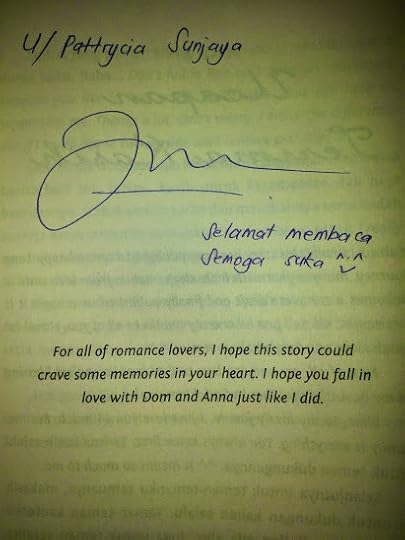 U/ Pattrycia Sunjaya
Selamat membaca
Semoga suka ^.^
For all of romance lovers, I hope this story could
crave some memories in your heart. I hope you fall in
love with Dom and Anna just like I did.